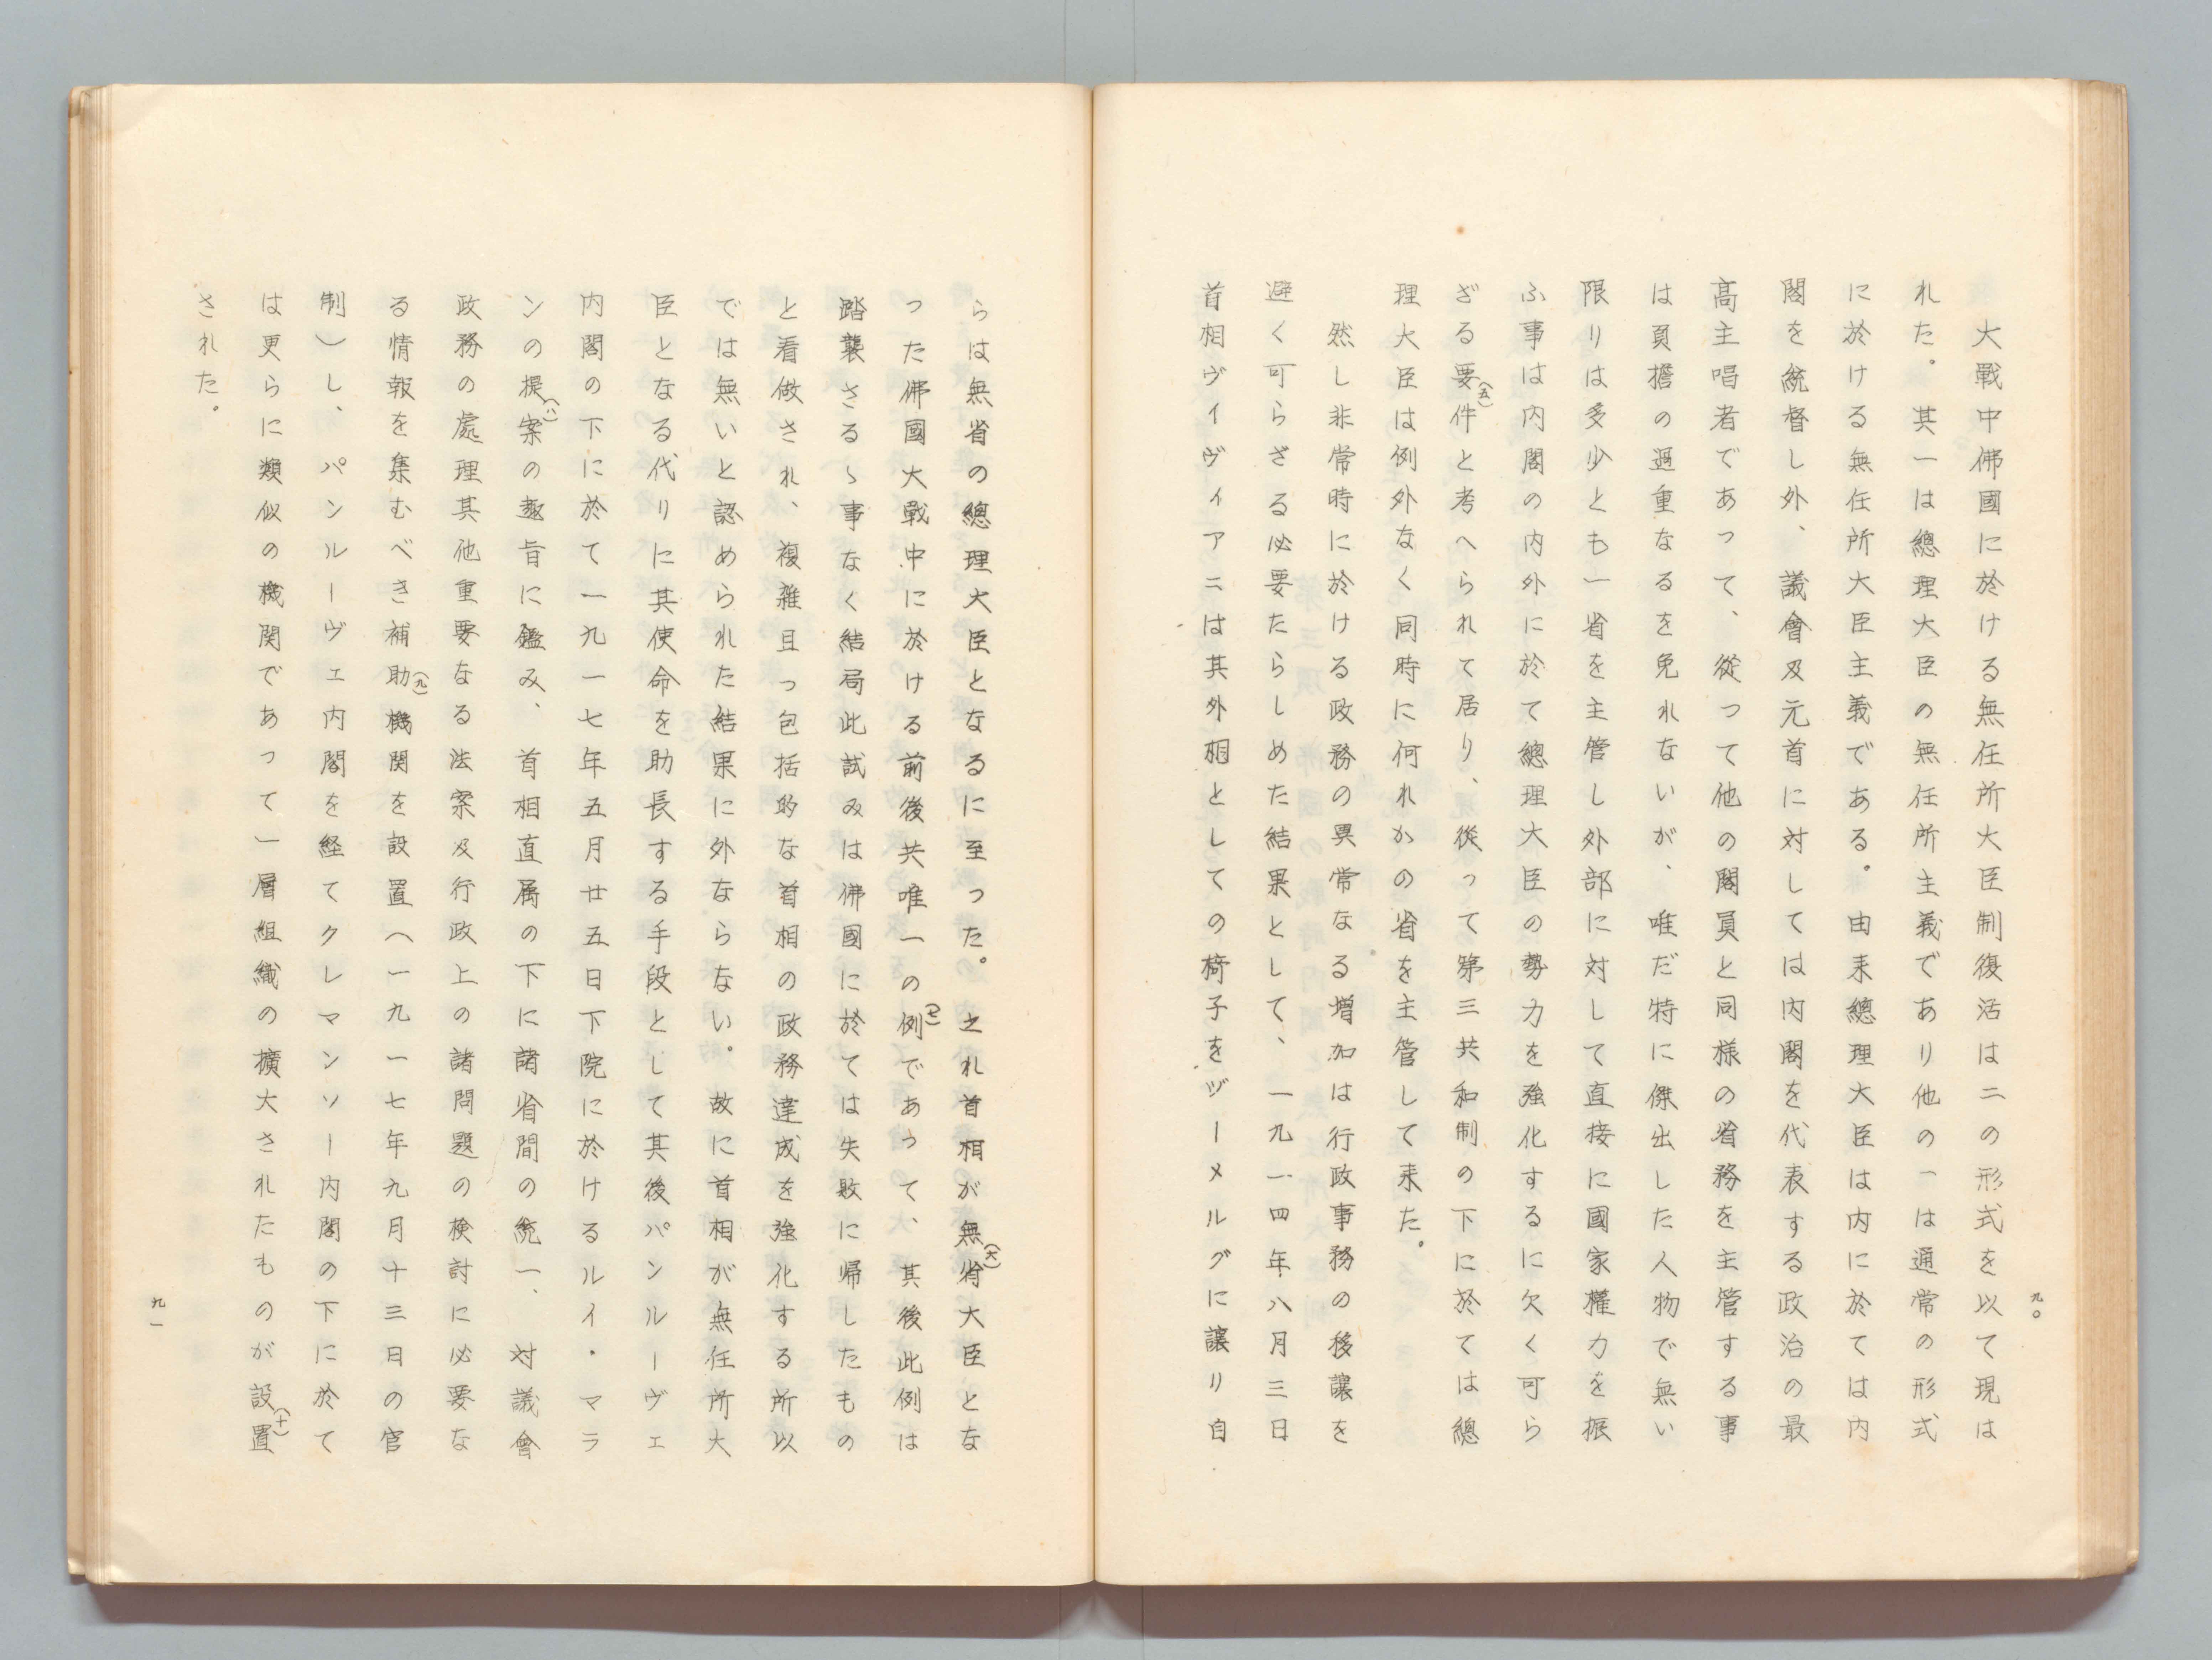 大戰中佛國に於ける無任所大臣制復活は二の形式を以て現は
れた。其一は總理大臣の無任所主義であり他の一は通常の形式
に於ける無任所大臣主義である。由来總理大臣は内に於ては内
閣を統督し外、議會及元首に対しては内閣を代表する政治の最
高主唱者であって、從って他の閣員と同様の省務を主管する事
は負擔の過重なるを免れないが、唯だ特に傑出した人物で無い
限りは多少とも一省を主管し外部に対して直接に國家權力を振
ふ事は内閣の内外に於て總理大臣の勢力を強化するに欠く可ら
ざる要件(五)と考へられて居り、從って第三共和制の下に於ては總
理大臣は例外なく同時に何れかの省を主管して来た。
然し非常時に於ける政務の異常なる増加は行政事務の移譲を
避く可らざる必要たらしめた結果として、一九一四年八月三日
首相ヴィヴィアニは其外相としての椅子をヅーメルグに譲り自
九〇
らは無省の總理大臣となるに至った。之れ首相が無省(六)大臣とな
った佛國大戰中に於ける前後共唯一の例(七)であって、其後此例は
踏襲さるゝ事なく結局此試みは佛國に於ては失敗に帰したもの
と看做され、複雑且つ包括的な首相の政務達成を強化する所以
では無いと認められた結果に外ならない。故に首相が無任所大
臣となる代りに其使命を助長する手段として其後パンルーヴェ
内閣の下に於て一九一七年五月廿五日下院に於けるルイ・マラ
ンの提案(八)の趣旨に鑑み、首相直属の下に諸省間の統一、対議會
政務の處理其他重要なる法案及行政上の諸問題の検討に必要な
る情報を集むべき補助(九)機関を設置(一九一七年九月十三日の官
制)し、パンルーヴェ内閣を経てクレマンソー内閣の下に於て
は更らに類似の機関であって一層組織の擴大されたものが設置(十)
された。
九一